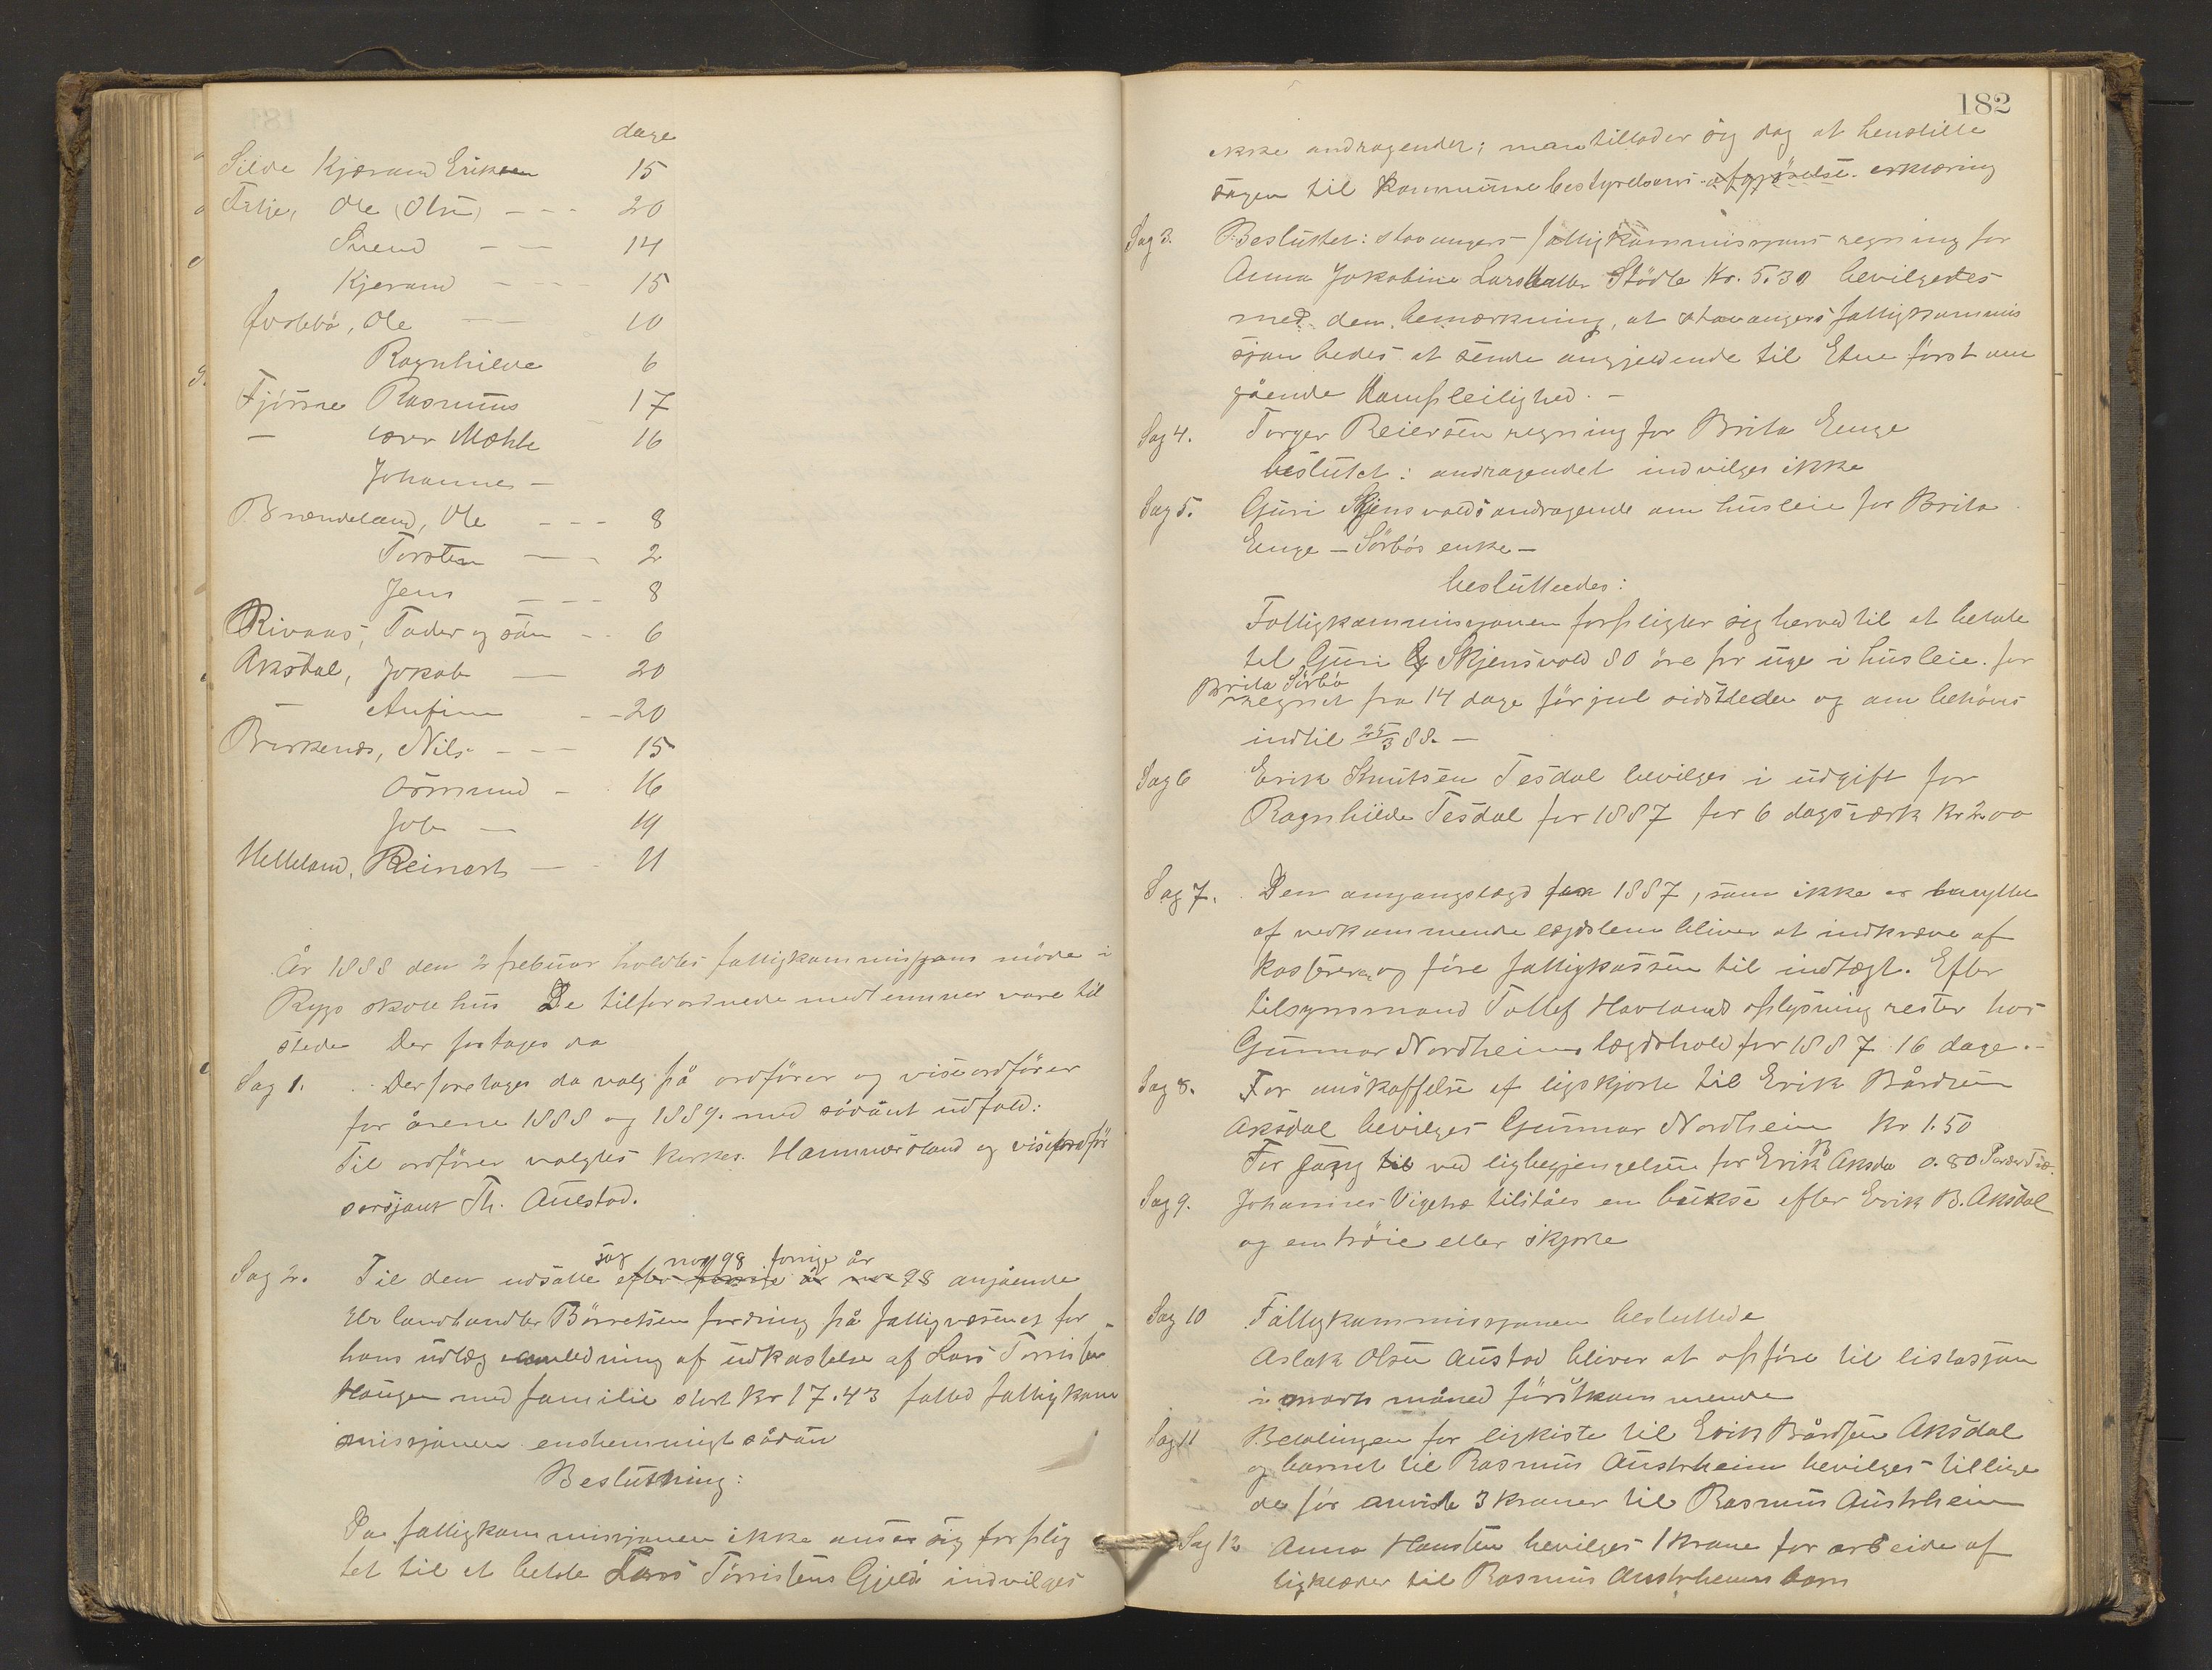 dage
Silde Kjærand Eriksen 15
Frette, Ole (Olsen) - - - 20
Svend - - 14
Kjerand - - - 15
Ole - - 10
Ragnhilde 6
Fjösne Rasmus 17
- Mæhle 16
Johannes -
Brændeland, Ole - - - 8
Torsten - - 2
Jens - - - 8
Rivenes, Tader og sön - - 6
Aksdal, Jokob - 20
- Anfinn - - 20
Birkenes, Nils - - - 15
Ormund - - 16
Job - 19
Helleland, Reinert - - 11
År 1888 den 2 februar holdtes fattigkommissjons möde i
Rygs skolehus De tilforordnede medlemmer vare til
stede Der fortages da
Sag 1. Der foretages da valg på ordförer og viseordförer
for årene 1888 og 1889. med sådant udfald:
Til ordförer valgtes kirkes. Hammersland og viseordför
sersjant Th. Austad.
sag no 98 forrige år
Sag 2. Til den udsatte efter forrige år no 98 angående
Hr landhandler Börretsen fordring på fattigvæsenet for
hans udlæg i anledning af udkastelse af Lars Törrisen
Haugen med familie stort kr 17.43 fatted fattigkom
missjonen enstemmigt sådan
Beslutning:
Da fattigkommissjonen ikke anser sig forplig
tet til at betale Lars Törrisens Gjeld indvilges
182
ikke andragendet; man tillader sig dog at henstille
sagen til Kommunebestyrelsens afgjörelse. erklæring
Sag 3. Besluttet: Stavangers fattigkommissjons regning for
Anna Jokobine Larsdatter Stödle Kr. 5.30 bevilgedes
med dem bemærkning, at Stavangers fattigkommis
sjon bedes at sende angjeldende til Etne först om
gående Dampleilighed. -
Sag 4. Torger Reiersen regning for Brita Enge
besluttet: andragendet indvilges ikke
Sag 5. Guri Skjensvolds andragende om husleie for Brita
Enge - Sörbös enke -
besluttedes:
Fattigkommissjonen forpligter sig herved til at betale
til Guri Skjensvold 80 öre pr uge i husleie. for
Brita Sörbö
regnet fra 14 dage för jul sidstleden og om behöves
indtil 25/3 88. -
Sag 6 Erik Knutsen Tesdal bevilges i udgift for
Ragnhilde Tesdal for 1887 for 6 dagsværk Kr 2.00
Sag 7. Den omgangslægd for 1887, som ikke er benyttet
af vedkommende lægdslem bliver at indkræve af
kasserer og före fattigkassen til indtægt. Efter
tilsynsmand Tollef Hovlands oplysning rester hos
Gunnar Nordheims lægdshold for 1887 16 dage. -
Sag 8. For anskaffelse af ligskjorte til Erik Bårdsen
Aksdal bevilges Gunnar Nordheim Kr 1.50
B
For sang til ved ligbegjengelsen for Erik Aksda 0.80
Sag 9. Johannes Vigetræ tilståes en bukse efter Erik B. Aksdal
og en tröie eller skjorte
Sag 10 Fattigkommissjonen besluttede
Aslak Olsen Austad bliver at opföre til lisitasjon
i marts måned förstkommende
Sag 11 Betalingen for ligkiste til Erik Bårdsen Aksdal
og barnet til Rasmus Austrheim bevilges tillige
de för anviste 3 kroner til Rasmus Austrheim
Sag 12 Anna Hansten bevilges 1 krone for arbeide af
ligklæder til Rasmus Austrheims barn